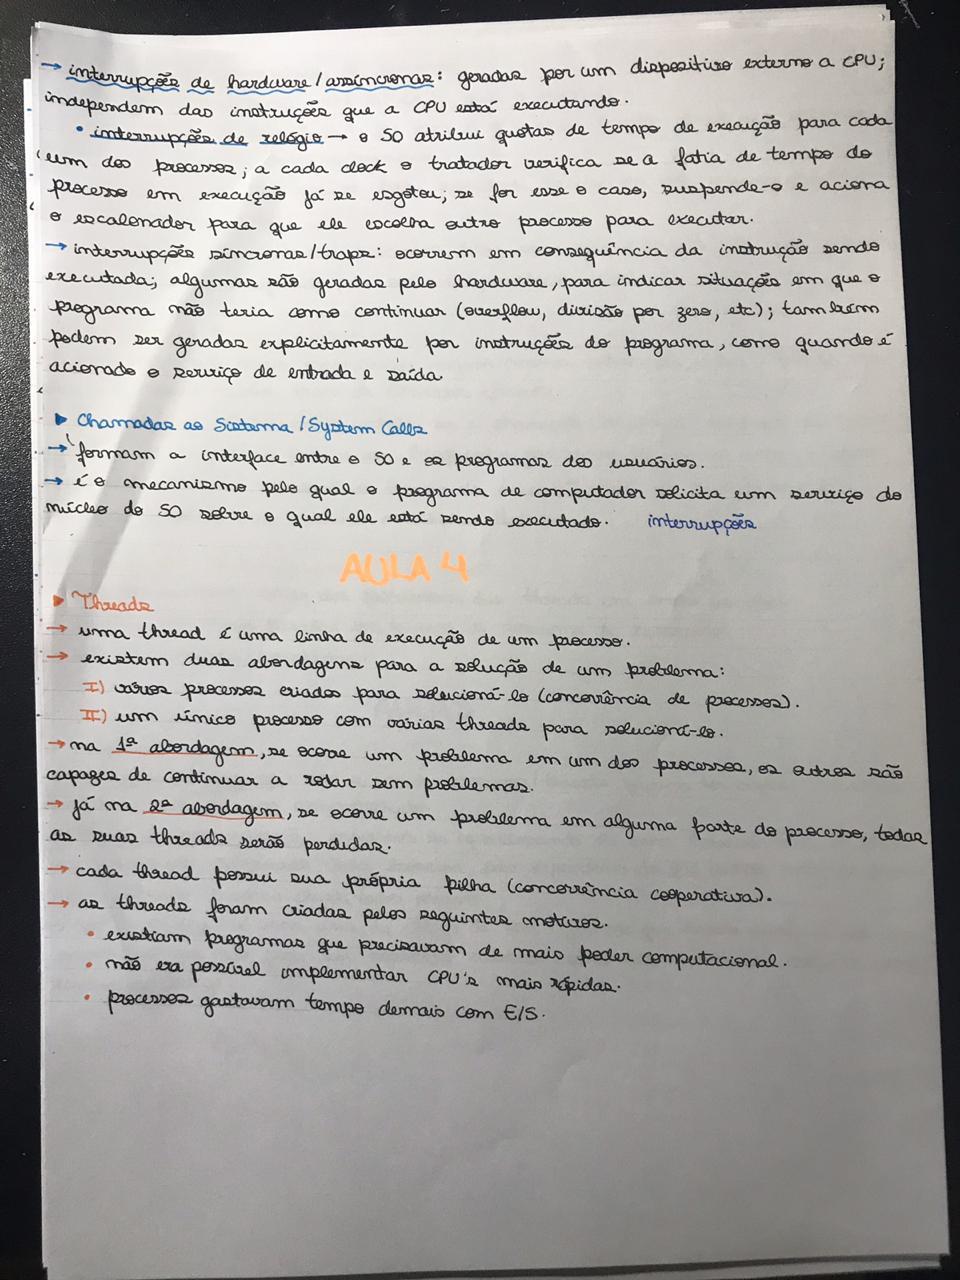 → interrupções de hardware/assíncronas: geradas por um dispositivo externo a CPU;
independem das instruções que a CPU está executando.
• interrupções de relógio → o SO atribui quotas de tempo de execução para cada
um dos processos; a cada clock o tratador verifica se a fatia de tempo do
processo em execução já se esgotou; se for esse o caso, suspende-o e aciona
o escalonador para que ele escolha outro processo para executar.
→ interrupções síncronas/traps: ocorrem em consequência da instrução sendo
executada; algumas são geradas pelo hardware, para indicar situações em que o
programa não teria como continuar (overflow, divisão por zero, etc); também
podem ser geradas explicitamente por instruções do programa, como quando é
acionado o serviço de entrada e saída.
▶ Chamadas ao Sistema/System Calls
→ formam a interface entre o SO e os programas dos usuários.
→ é o mecanismo pelo qual o programa de computador solicita um serviço do
núcleo do SO sobre o qual ele está sendo executado. interrupções
AULA 4
▶ Threads
→ uma thread é uma linha de execução de um processo.
→ existem duas abordagens para a solução de um problema:
I) vários processos criados para solucioná-lo (concorrência de processos).
II) um único processo com várias threads para solucioná-lo.
→ na 1ª abordagem, se ocorre um problema em um dos processos, os outros são
capazes de continuar a rodar sem problemas.
→ já na 2ª abordagem, se ocorre um problema em alguma parte do processo, todas
as suas threads serão perdidas.
→ cada thread possui sua própria pilha (concorrência cooperativa).
→ as threads foram criadas pelos seguintes motivos.
• existiam programas que precisavam de mais poder computacional.
• não era possível implementar CPU's mais rápidas.
• processos gastavam tempo demais com E/S.